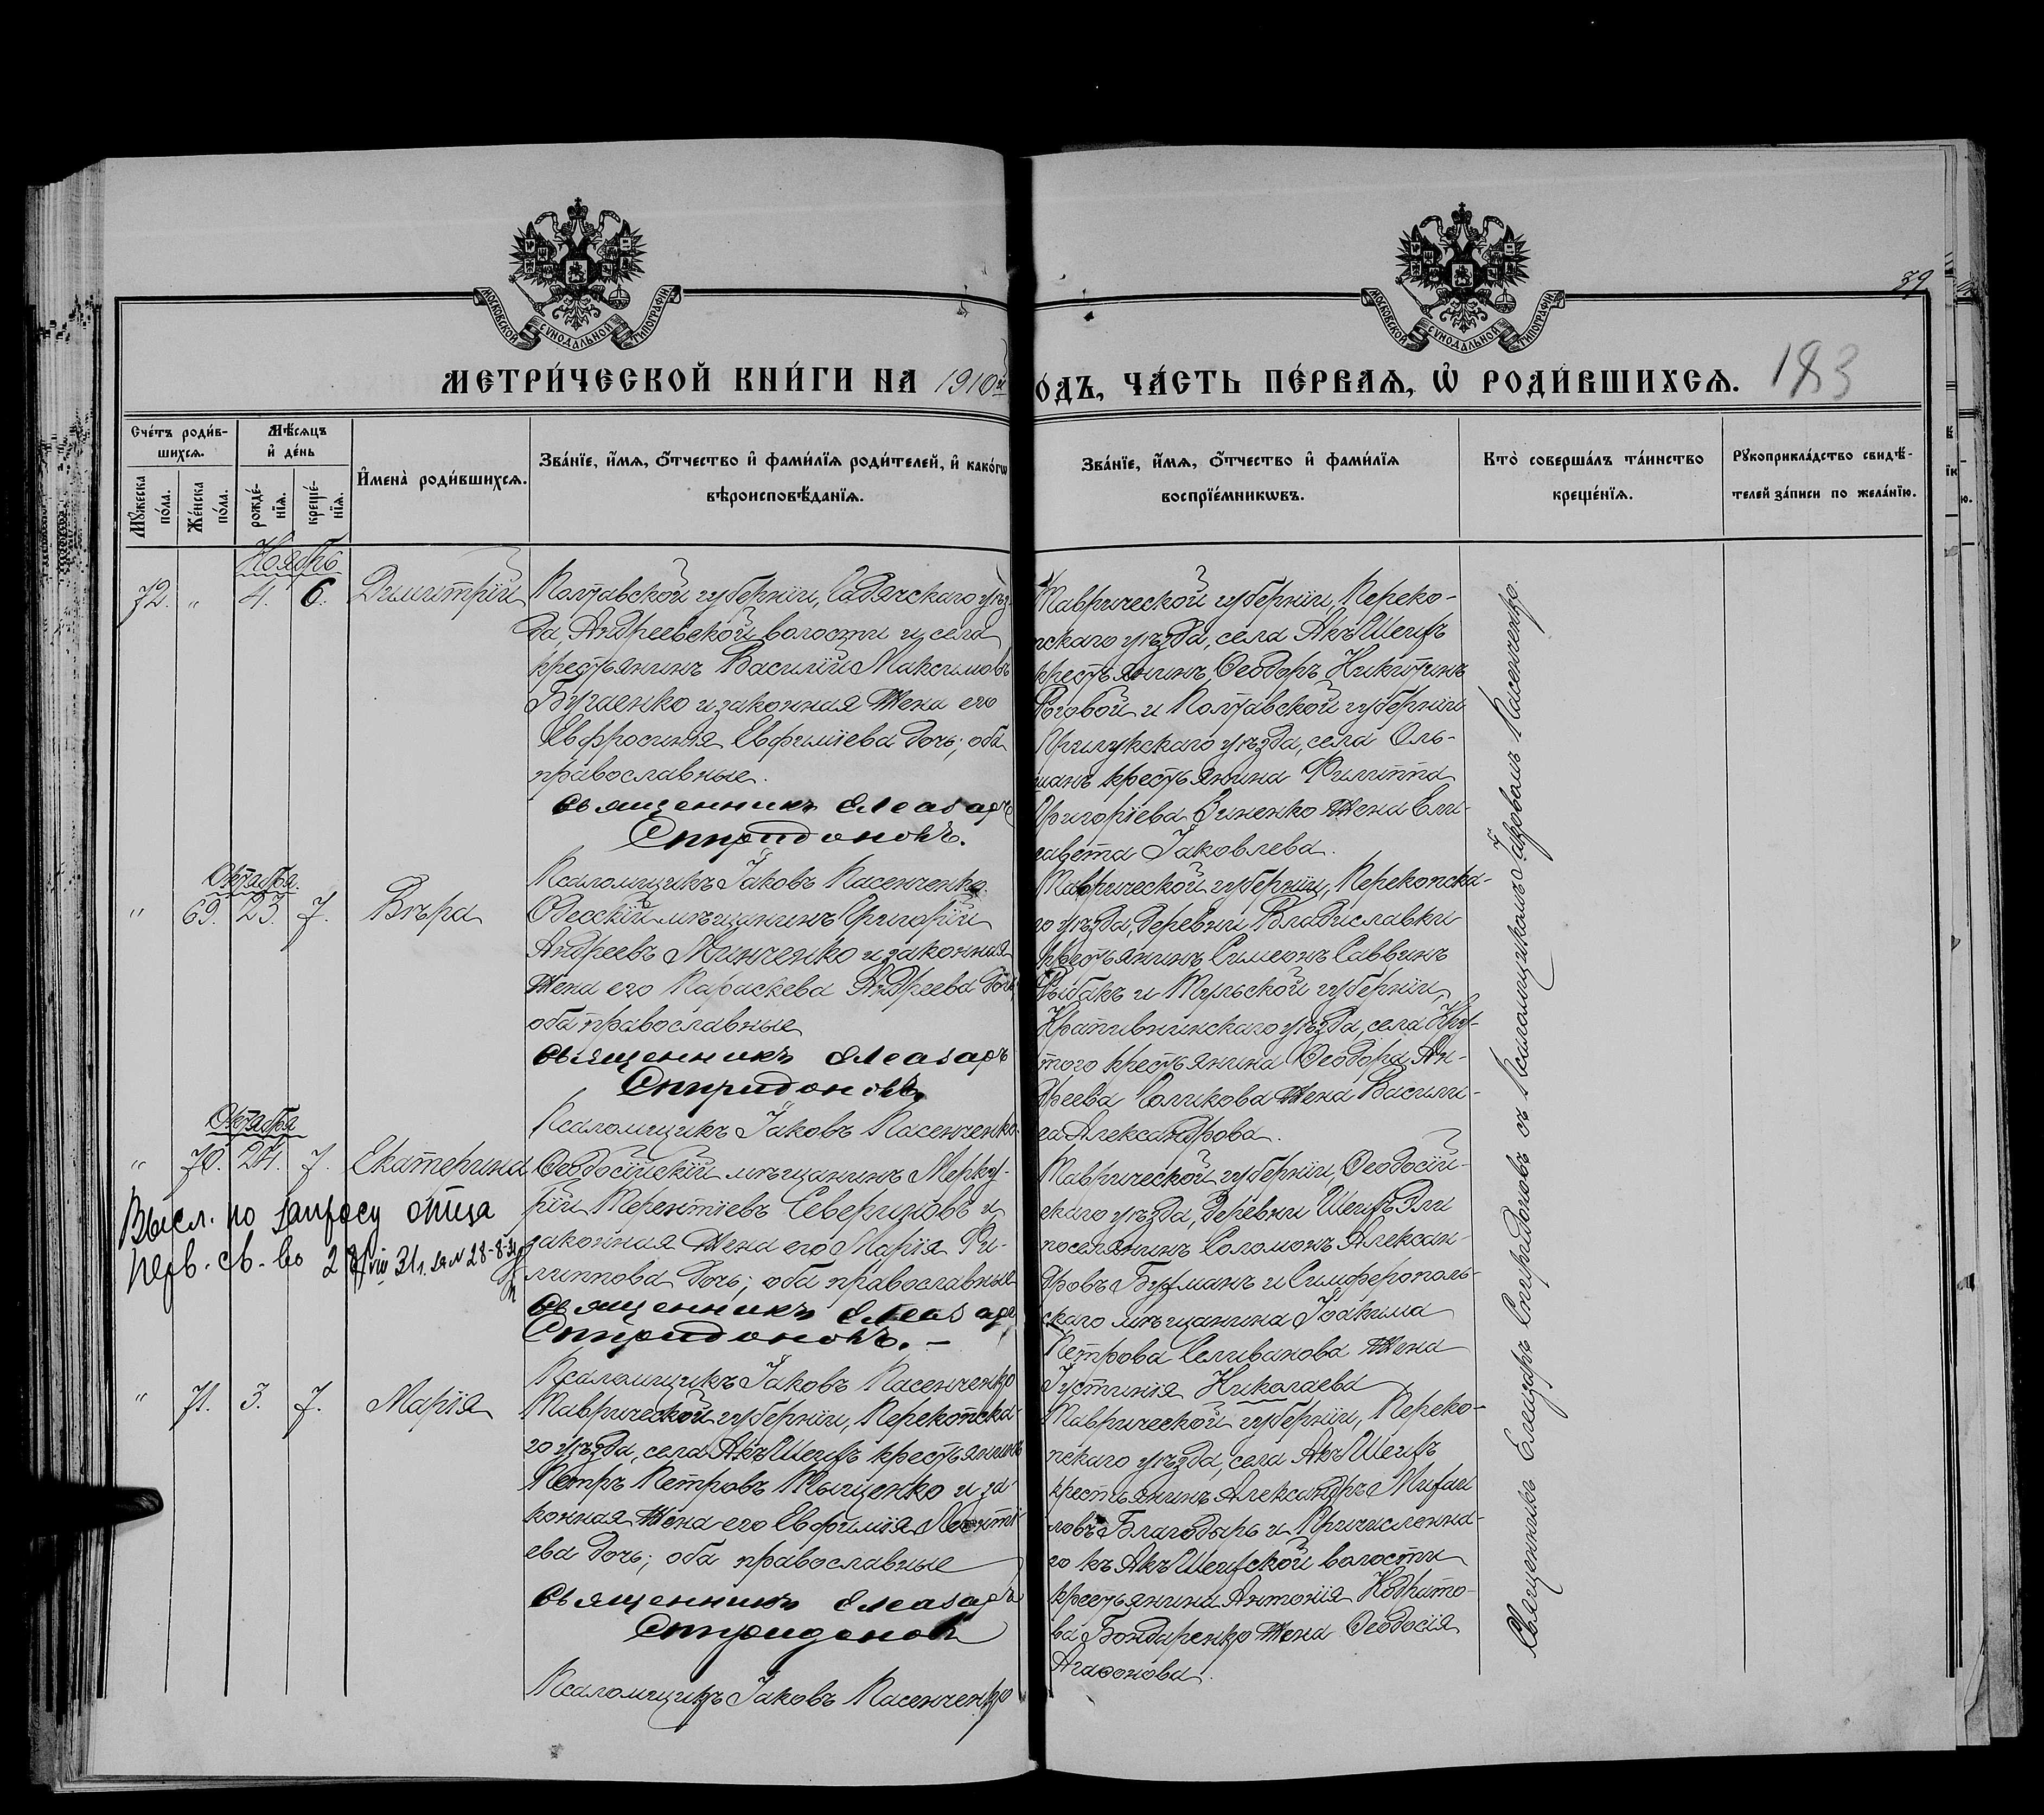 39
183
МОСКОВСКОЙ СѴНОДАЛЬНОЙ ТИПОГРАФІИ
МОСКОВСКОЙ СѴНОДАЛЬНОЙ ТИПОГРАФІИ
МЕТРИ́ЧЕСКОЙ КНИ́ГИ НА 1910й
О́ДЪ, ЧА́СТЬ ПЕ́РВАѦ, Ѿ РОДИ́ВШИХСѦ.
Сче́тъ роди́в-
шихсѧ.
Мꙋ́жеска по́ла.
Же́нска по́ла.
Мѣ́сѧцъ
и҆ де́нь
рожде́-
нїѧ.
креще́-
нїѧ.
И҆мена̀ роди́вшихсѧ.
Зва́нїе, и҆́мѧ, ѻ҆́тчество и҆ фами́лїѧ роди́телей, и҆ како́гѡ
вѣроисповѣ́данїѧ.
Зва́нїе, и҆́мѧ, ѻ҆́тчество и҆ фами́лїѧ
воспрїе́мникѡвъ.
Кто̀ соверша́лъ та́инство
креще́нїѧ.
Рꙋкоприкла́дство свидѣ́-
телей за́писи по жела́нїю.
Ноябрь
72. " 4. 6. Димитрій
Полтавской губерніи, Гадячскаго уѣз-
да Андреевской волости и села
крестьянинъ Василій Максимовъ
и законная жена его
Евфросинія Евфиміева дочь; оба
православные.
Священникъ Елеазаръ
Спиридоновъ.
Псаломщикъ Іаковъ Пасенченко.
Таврической губерніи, Переко-
пскаго уѣзда, села Акъ Шеихъ
крестьянинъ Ѳеодоръ Никитинъ
Роговой и Полтавской губерніи
Прилукскаго уѣзда, села Оль-
шанъ крестьянина Филиппа
Григоріева Зиненко жена Ели-
савета Іаковлева.
Октября
" 69. 23. 7. Вѣра
Одесскій мѣщанинъ Григорій
Андреевъ Минченко и законная
жена его Параскева Андреева дочь,
оба православные
Священникъ Елеазаръ
Спиридоновъ.
Псаломщикъ Іаковъ Пасенченко.
Таврической губерніи, Перекопска-
го уѣзда, деревни Владиславки
крестьянинъ Симеонъ Саввинъ
Рыбакъ и Тульской губерніи,
Крапивнинскаго уѣзда, села Кру-
того крестьянина Ѳеодора Ан-
дреева Голикова жена Васили-
са Александрова.
Октября
" 70. 24. 7. Екатерина
Ѳеодосійскій мѣщанинъ Мерку-
рій Терентіевъ Севериновъ и
законная жена его Марія Фи-
липпова дочь; оба православные
Священникъ Елеазаръ
Спиридоновъ.
Псаломщикъ Іаковъ Пасенченко
Высл. по запросу отца
перв. св-во 28/VIII 31 г. за № 28-8-31
Таврической губерніи, Ѳеодосій-
скаго уѣзда, деревни Шеихъ Эли
поселянинъ Соломонъ Алексан-
дровъ и Симферополь-
скаго мѣщанина Іоакима
Петрова Селиванова жена
Іустинія Николаева
" 71. 3. 7. Марія
Таврической губерніи, Перекопска-
го уѣзда, села Акъ Шеихъ крестьянинъ
Петръ Петровъ Тыщенко и за-
конная жена его Евфимія Леонті-
ева дочь; оба православные
Священникъ Елеазаръ
Спиридоновъ
Псаломщикъ Іаковъ Пасенченко
Таврической губерніи, Переко-
пскаго уѣзда, села Акъ Шеихъ
крестьянинъ Александръ Михаи
ловъ Благодырь и Причисленна-
го къ Акъ Шеихской волости
крестьянина Антонія Кодрато-
ва Бондаренко жена Ѳеодосія
Агаѳонова.
Священникъ Елеазаръ Спиридоновъ съ псаломщикомъ Іаковомъ Пасенченко.